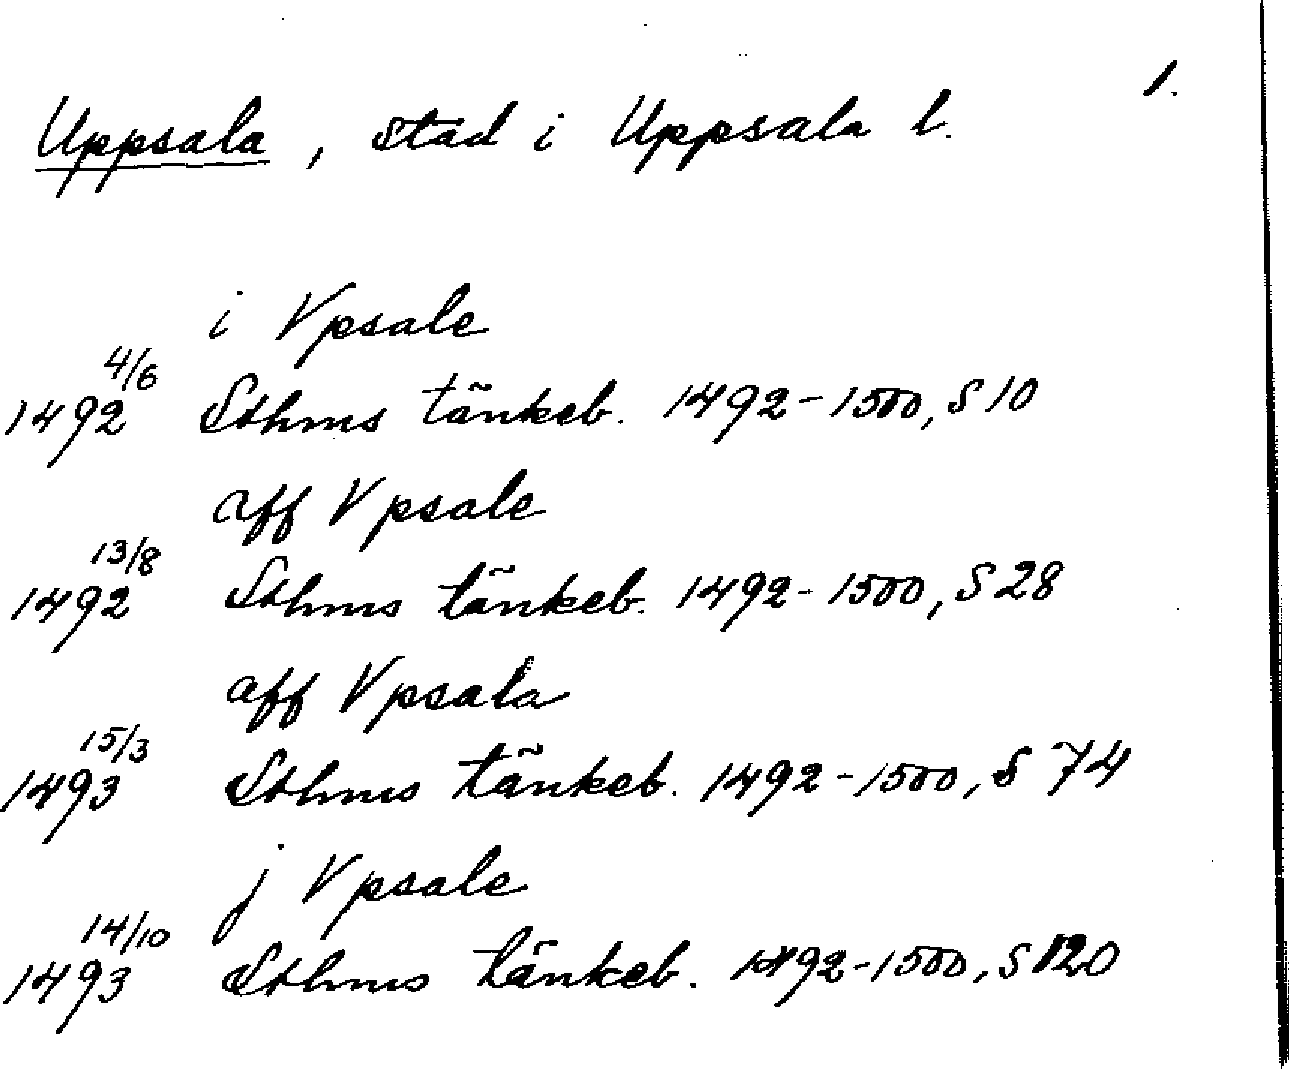 1.
Uppsala, stad i Uppsala l.
i Vpsale
4/6
1492 Sthms tänkeb. 1492-1500, S 10
aff Vpsale
13/8
1492 Sthms tänkeb. 1492-1500, S 28
aff Vpsala
15/3
1493 Sthms tänkeb. 1492-1500, S 74
j Vpsale
14/10
1493 Sthms tänkeb. 1492-1500, S 120